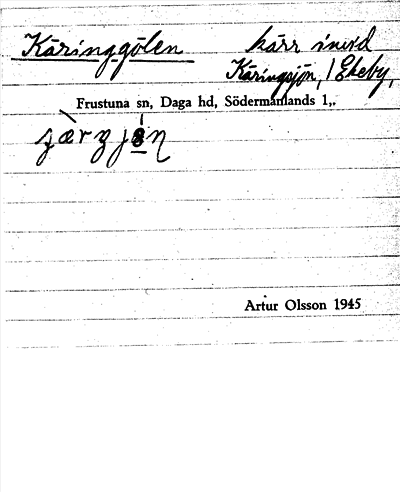 Käringgölen kärr invid
Käringsjön, 1 Ekeby,
Frustuna sn, Daga hd, Södermanlands l.
Artur Olsson 1945